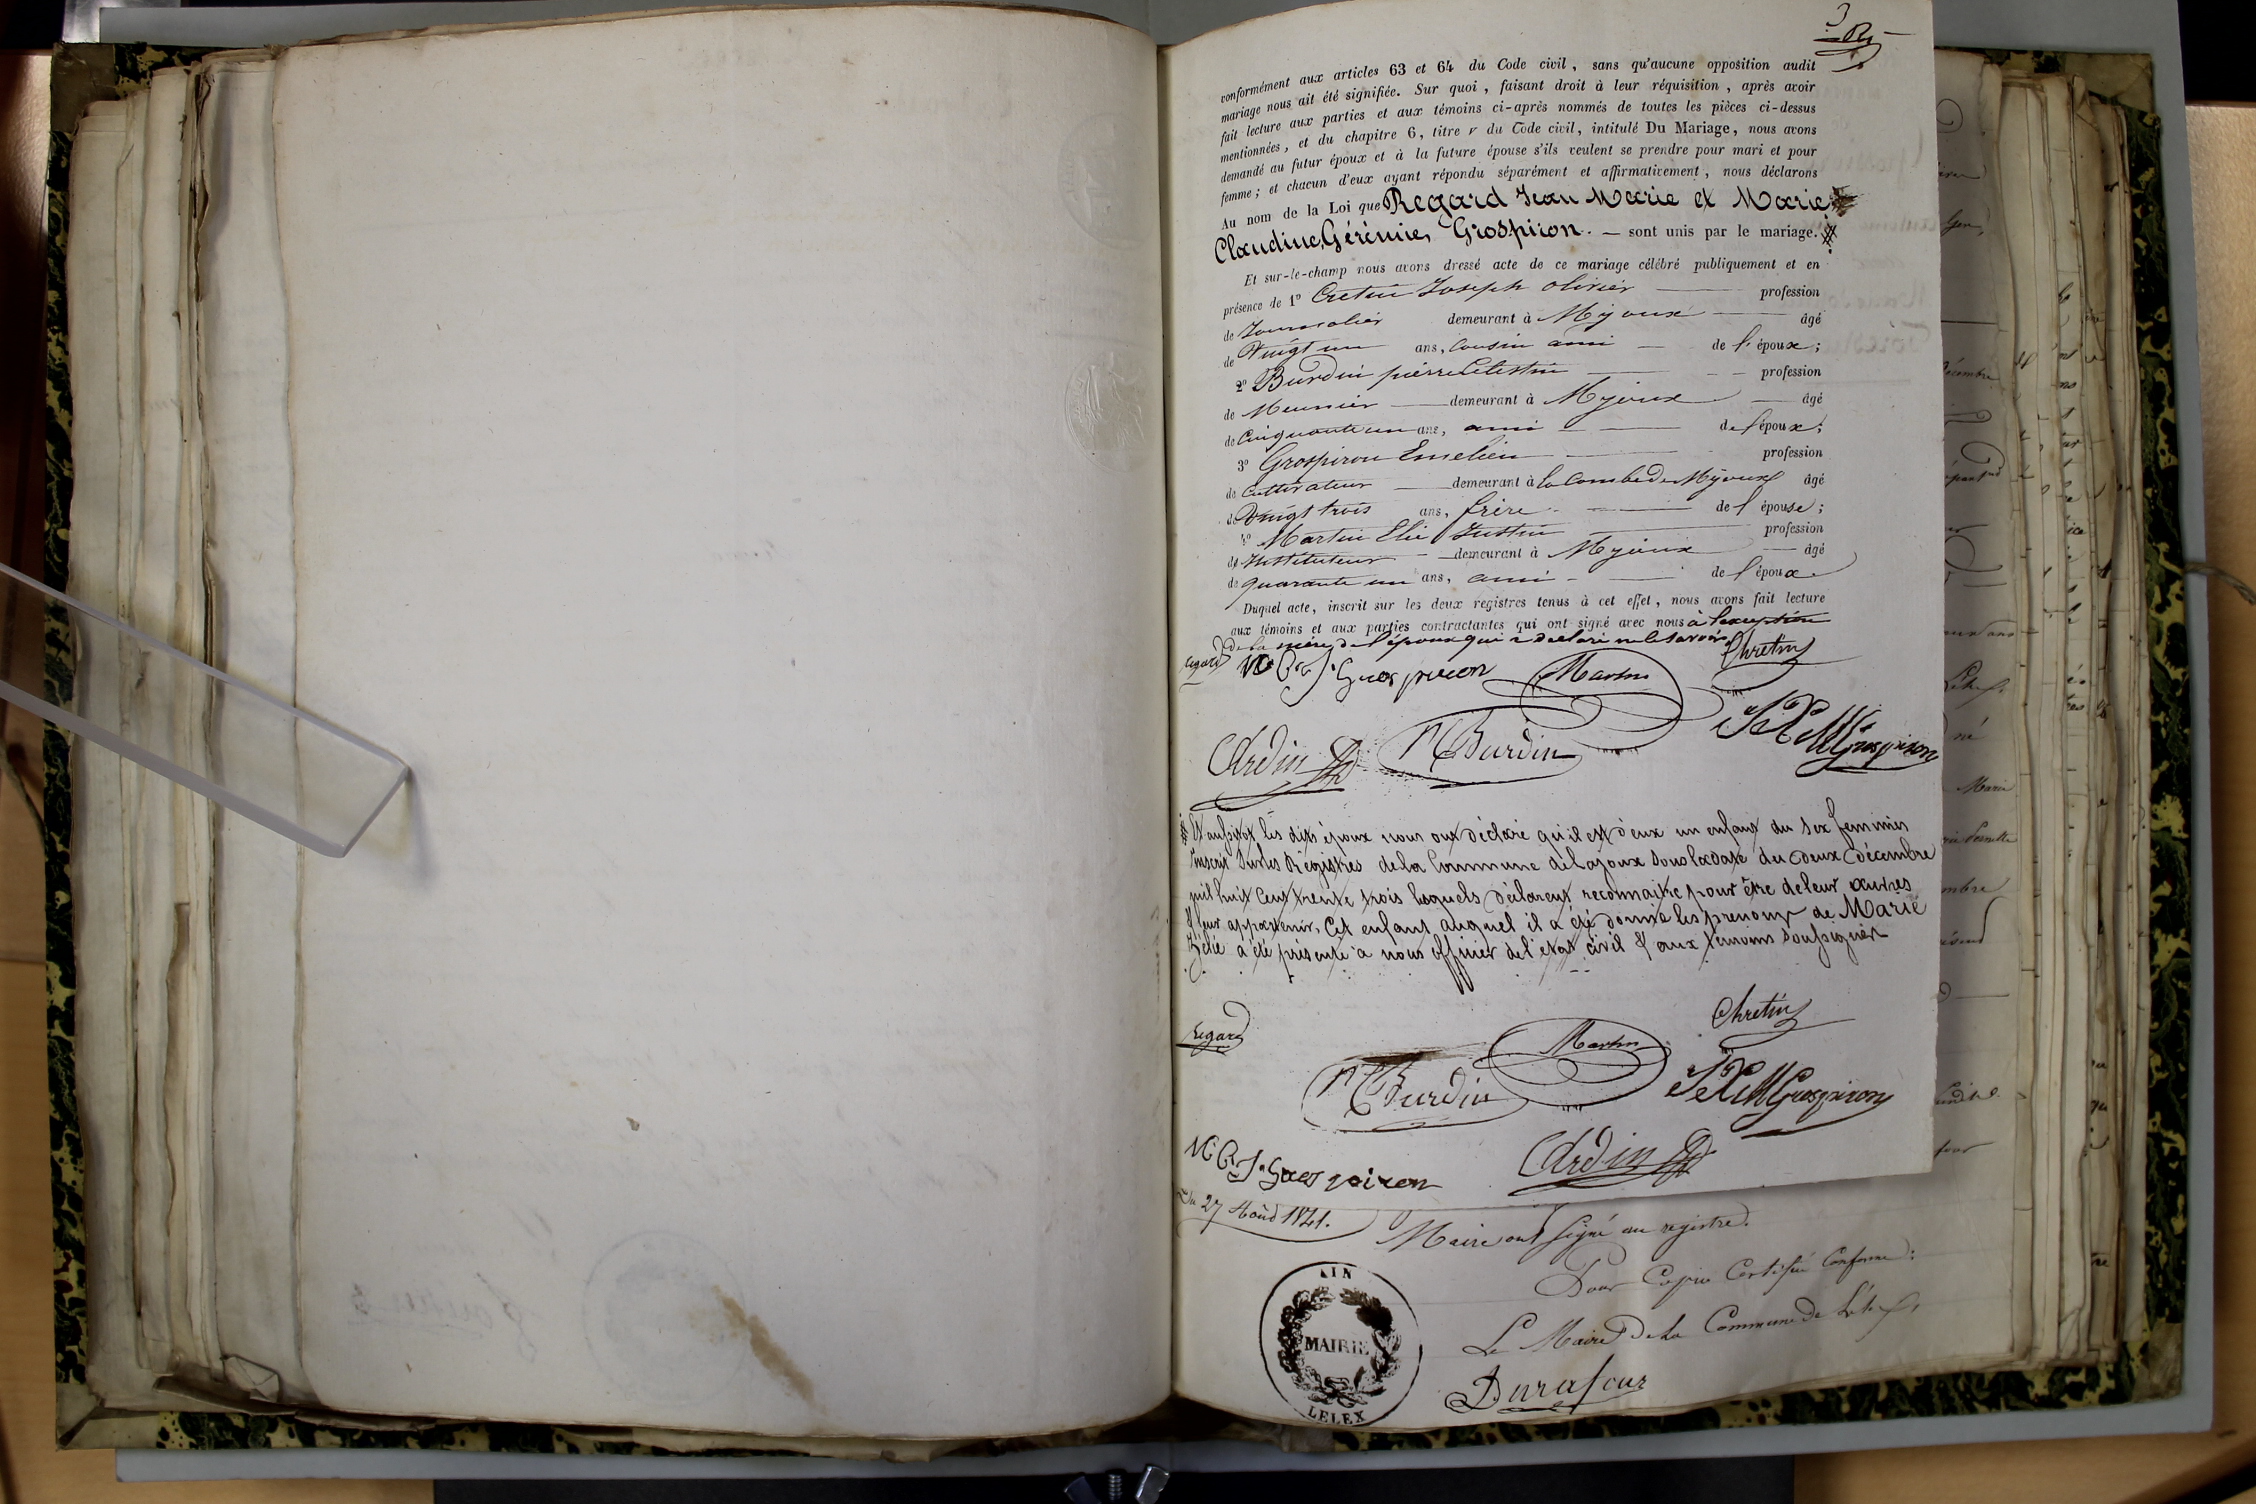 3
conformément aux articles 63 et 64 du Code civil, sans qu'aucune opposition audit
mariage nous ait été signifiée. Sur quoi, faisant droit à leur réquisition, après avoir
fait lecture aux parties et aux témoins ci-après nommés de toutes les pièces ci-dessus
mentionnées, et du chapitre 6, titre v du Code civil, intitulé Du Mariage, nous avons
demandé au futur époux et à la future épouse s'ils veulent se prendre pour mari et pour
femme; et chacun d'eux ayant répondu séparément et affirmativement, nous déclarons
Au nom de la Loi que Regard Jean Marie et Marie
Claudine Gérémie, Grospiron. — sont unis par le mariage. #
Et sur-le-champ nous avons dressé acte de ce mariage célébré publiquement et en
présence de 1º Cretin Joseph olivier — profession
de Journalier demeurant à Mijoux — âgé
de Vingt un ans, Cousin ami — de l'époux;
2º Burdin pierre Celestin — profession
de Meunier — demeurant à Mijoux — âgé
de Cinquante un ans, ami — de l'époux;
3º Grospiron Emelien — profession
de Cultivateur — demeurant à la Combe de Mijoux âgé
de Vingt trois ans, frère — de l'épouse;
4º Martin Elie Justin — profession
de Instituteur — demeurant à Mijoux — âgé
de quarante un ans, ami — de l'époux.
Duquel acte, inscrit sur les deux registres tenus à cet effet, nous avons fait lecture
aux témoins et aux parties contractantes qui ont signé avec nous à l'exception
de la mère de l'époux qui a declaré ne le savoir.
regard M C J Grospiron Martin Chretin
Ardin P C Burdin Grospiron
# Et aussitot les dits époux nous ont déclaré qu'il est d'eux un enfant du sex feminin
inscrit sur les Régistres de la Commune de Lajoux sous la date du deux décembre
mil huit cent trente trois lesquels déclarent reconnaitre pour être de leur œuvres
& leur appartenir, Cet enfant auquel il a été donné les prenoms de Marie
Zélié a été présenté à nous officier de l'état civil & aux témoins soussignés
Chretin
regard Martin
P C Burdin Grospiron
M C J Grospiron Ardin
Du 27 Août 1841.
Maire ont signé au registre.
Pour Copie Certifié Conforme:
Le Maire de la Commune de Lélex,
AIN
MAIRIE
LELEX
Durafour